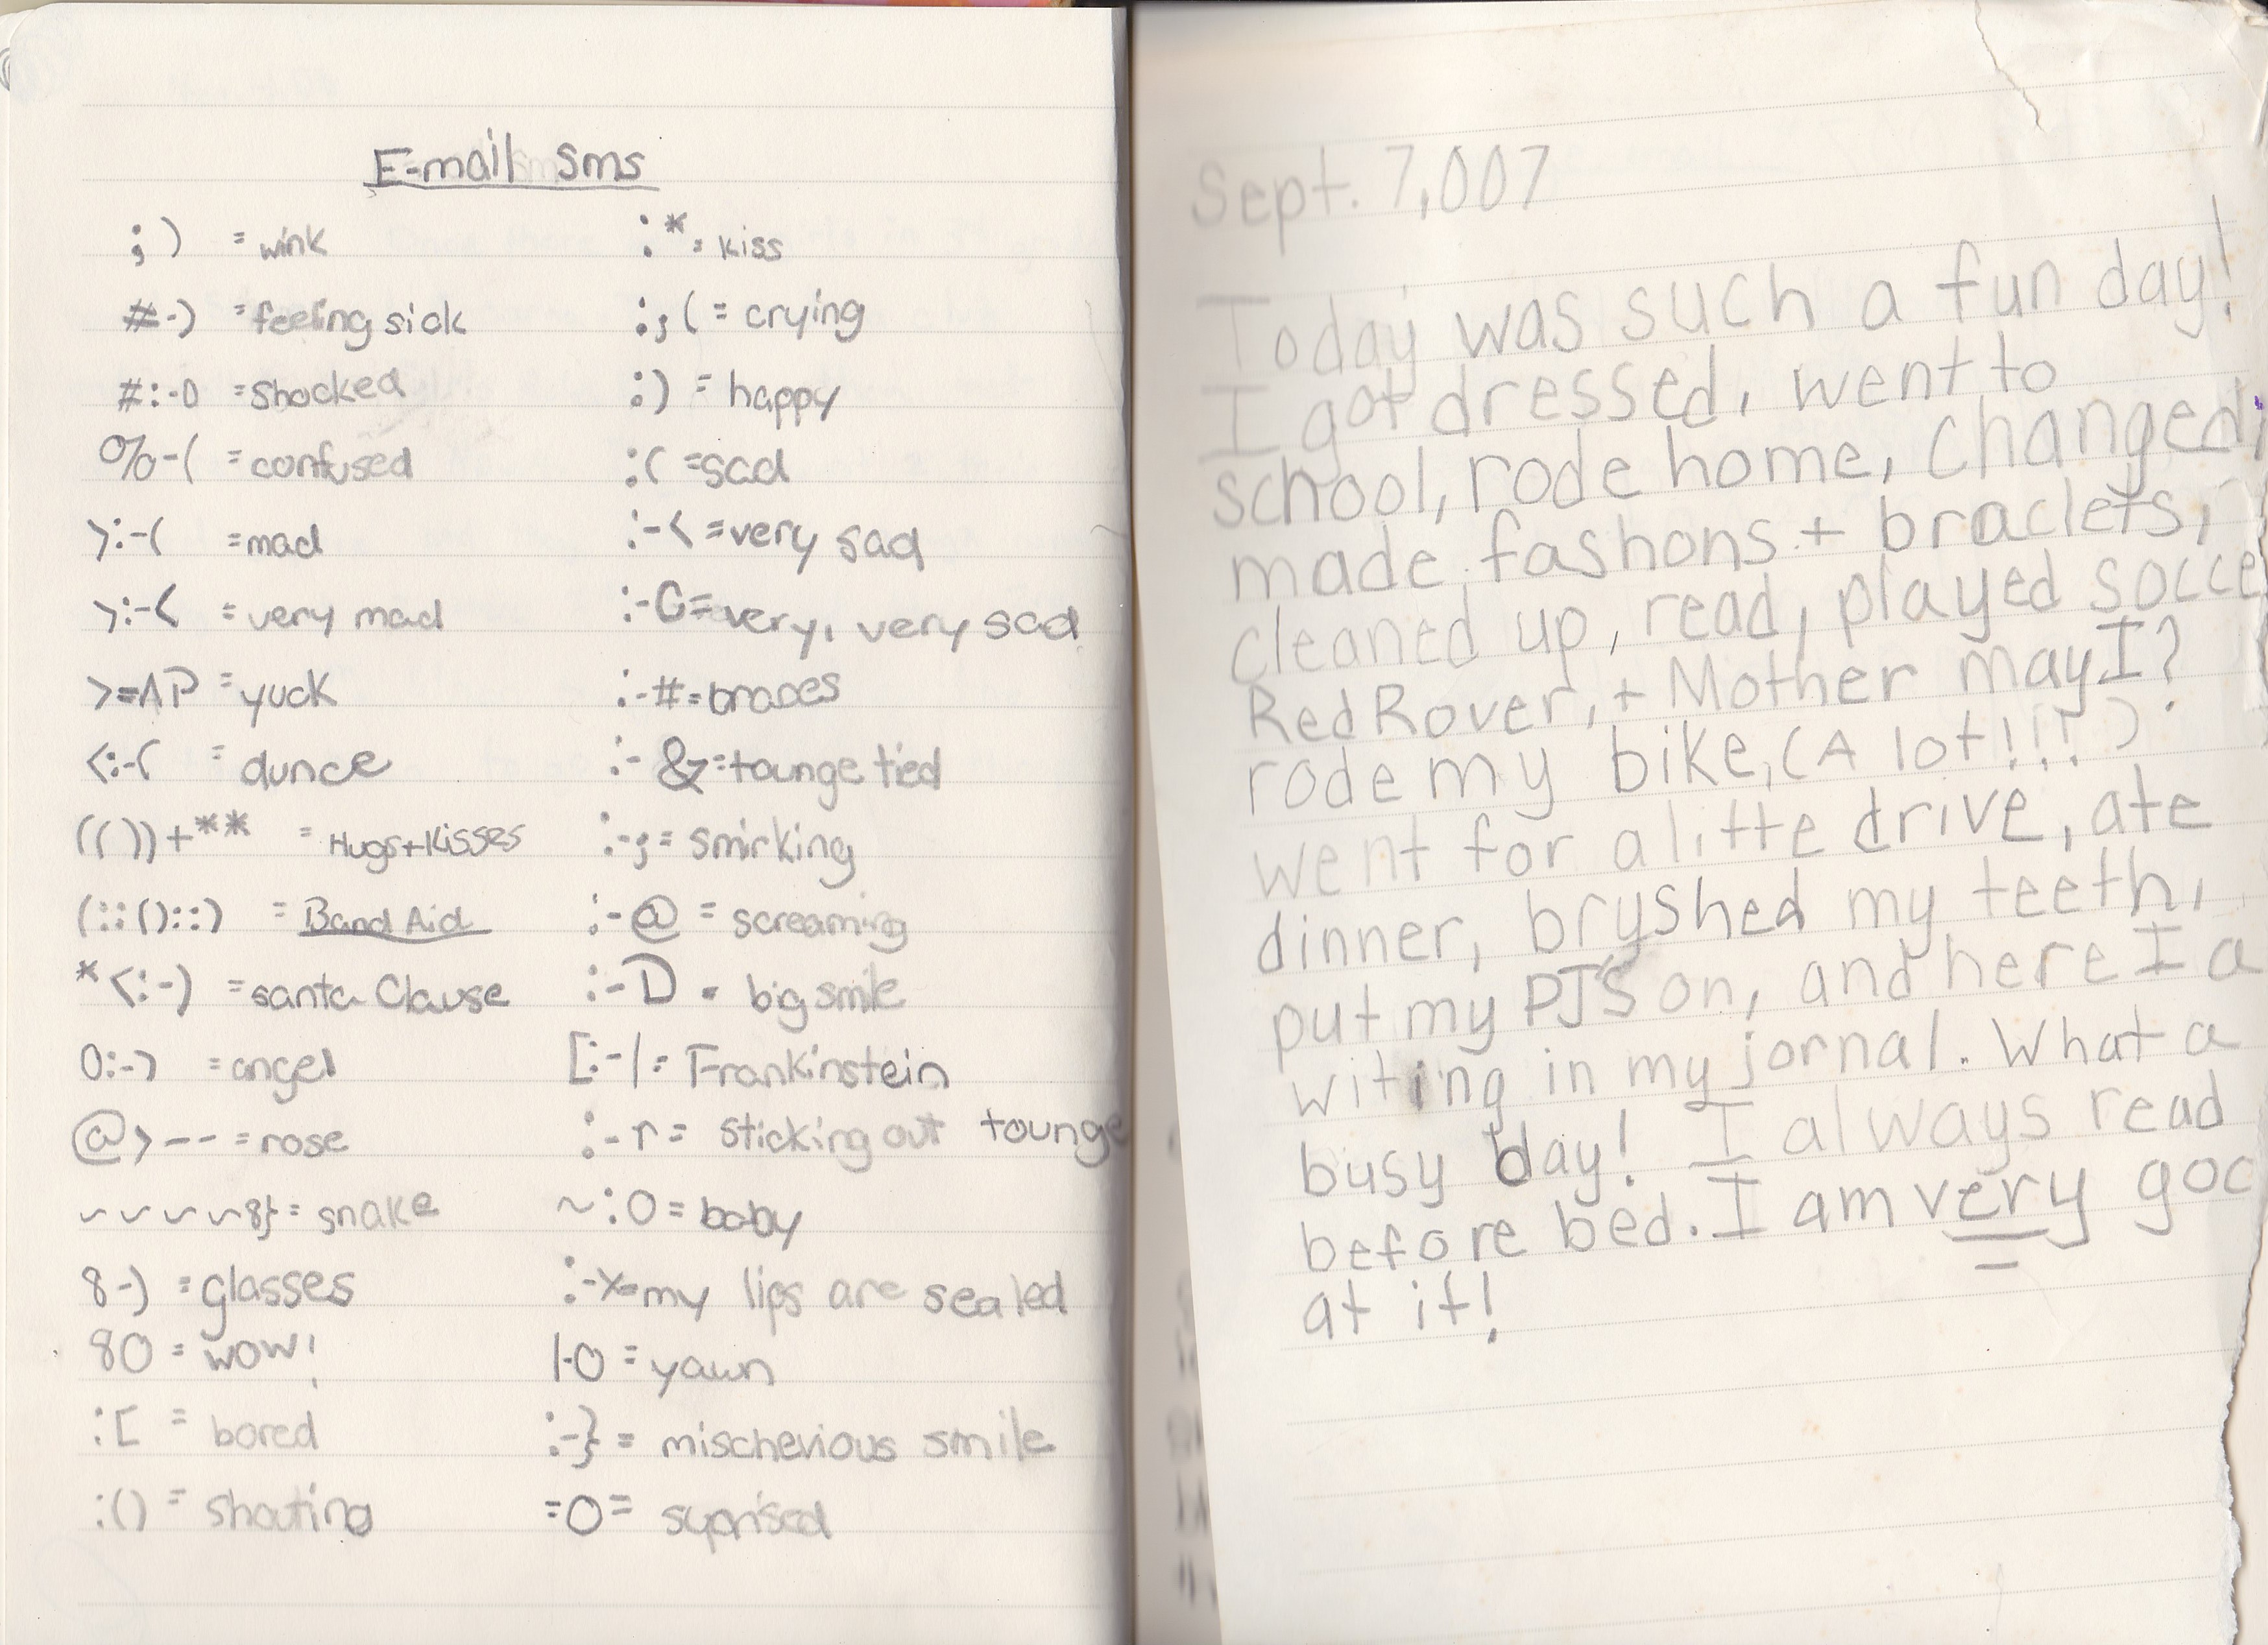 E-mail sms
;) = wink
#-) = feeling sick
#:-O = Shocked
%-( = confused
>:-( = mad
>:-< = very mad
>=ΛP = yuck
<:-( = dunce
(())+** = Hugs+Kisses
(::()::) = Band Aid
*<:-) = santa Clause
O:-) = angel
@>-- = rose
~~~~8} = snake
8-) = glasses
8O = wow!
:[ = bored
:() = shouting
:* = kiss
:;( = crying
:) = happy
:( = sad
:-< = very sad
:-C = very, very sad
:-# = braces
:-& = tounge tied
:-; = smirking
:-@ = screaming
:-D = big smile
[:-| = Frankinstein
:-r = sticking out tounge
~:O = baby
:-x = my lips are sealed
|-O = yawn
:-} = mischevious smile
=O = syprised
Sept. 7,007
Today was such a fun day!
I got dressed, went to
school, rode home, changed,
made fashons + braclets,
cleaned up, read, played socce
Red Rover, + Mother may I?
rode my bike, (A lot!!!)
went for a litte drive, ate
dinner, bryshed my teeth,
put my PJ'S on, and here I a
witing in my jornal. What a
busy day! I always read
before bed. I am very goo
at it!